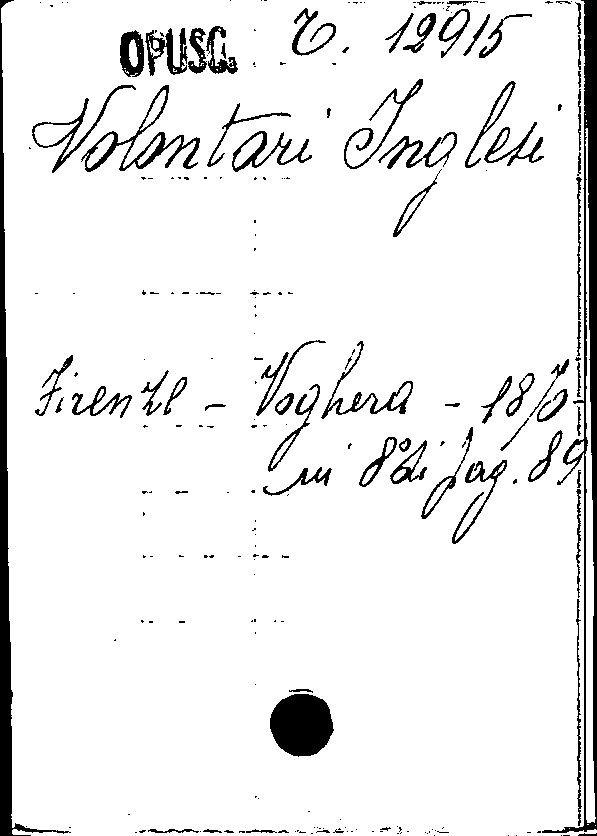 OPUSC. C. 12915
Volontari Inglesi
Firenze - Voghera - 1870-
in 8° di pag. 89